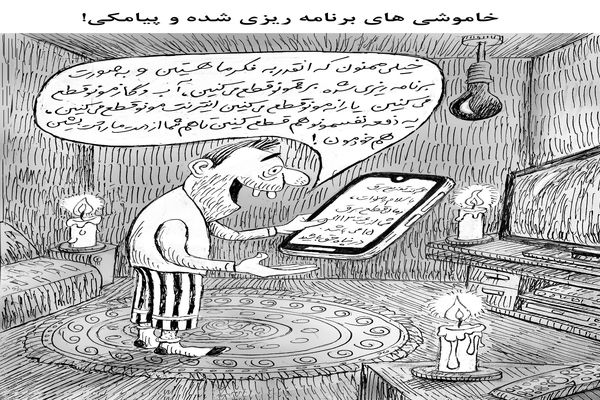 خاموشی های برنامه ریزی شده و پیامکی!
خیلی ممنون که انقدر به فکر ما هستین و بصورت
برنامه ریزی شده برقمونو قطع می کنین، آب و گازمونو قطع
می کنین یارانمونو قطع می کنین اینترنتمونو قطع می کنین،
یه دفعه نفسمونو هم قطع کنین تا هم شما از دست ما راحت شین
هم خودمون!